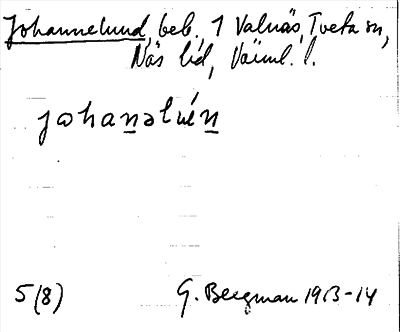 Johannelund, beb. 1 Valnäs, Tveta sn,
Näs hd, Värml. l.
johanəlun
5(8) G. Bergman 1913-14